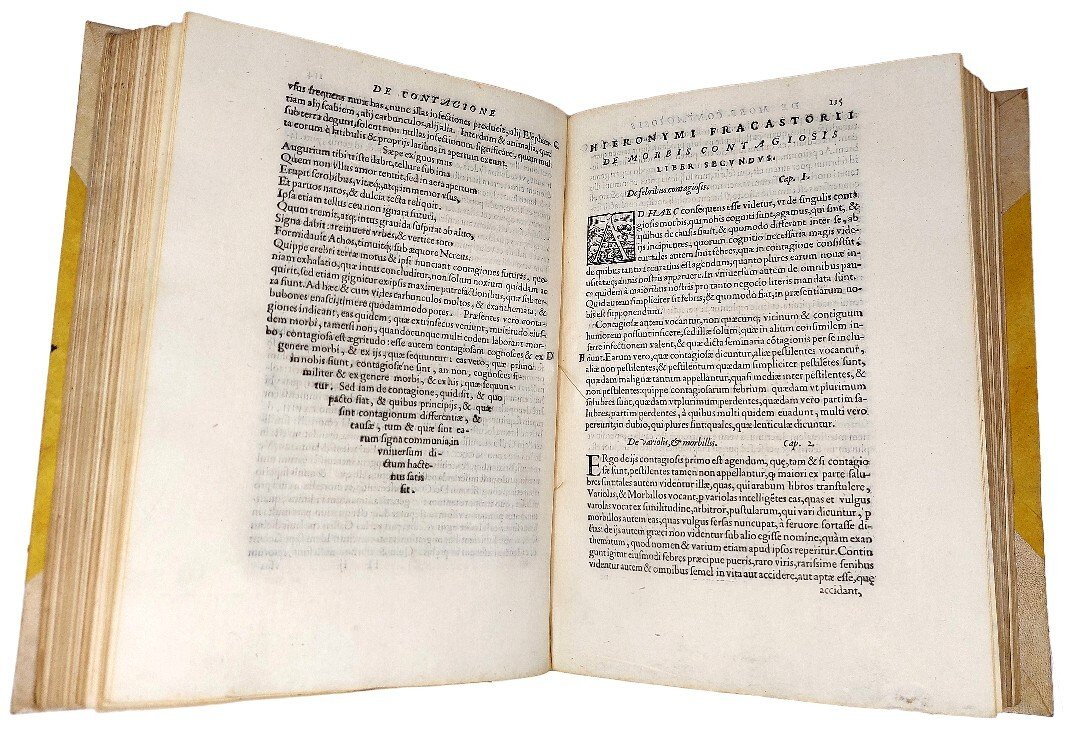 DE CONTAGIONE
vsus frequens nunc has, nunc illas infectiones producit, alij Elephen
tiam alij scabiem, alij carbunculos, alij alia. Interdum & animalia, quæ
subterra degunt, solent non nullas infectionum significare, quum mul
ta eorum è latibulis & proprijs laribus in apertum exeunt.
Sæpe exiguus mus
Augurium tibi triste dabit, tellure sub ima
Quem non vllus amor tenuit, sed in aera apertum
Erupit scrobibus, vitæq;, atq; im memor vsus,
Et paruos natos, & dulcia tecta reliquit.
Ipsa etiam tellus ceu non ignara futuri,
Quum tremit, atq; intus grauida suspirat ab aluo,
Signa dabit: tremuere vrbes, & vertice toto
Formidauit Athos, timuitq; sub æquore Nereus.
Quippe crebri terræ motus & ipsi nunciant contagiones futuras, quo-
niam exhalatio, quæ intus concluditur, non solum noxium quiddam re
quirit, sed etiam gignitur ex ipsis maxime putrefactionibus, quæ subter-
ra fiunt. Ad hæc & cum vides carbunculos multos, & exanthemata, &
bubones enasci, timere quodammodo potes. Præsentes vero conta-
giones indicant, eas quidem, quæ extrinsecus veniunt, multitudo eius-
dem morbi, tamersi non, quandocunque multi eodem laborant mor-
bo, contagiosa est ægritudo: esse autem contagiosam cognosces & ex
genere morbi, & ex ijs, quæ sequuntur: eas vero, quæ primum
in nobis fiunt, contagiosæ ne sint, an non, cognosces si-
militer & ex genere morbi, & ex his, quæ sequun-
tur. Sed iam de contagione, quid sit, & quo
pacto fiat, & quibus principijs, & quæ
sint contagionum differentiæ, &
causæ, tum & quæ sint ea-
rum signa communia, in
vniuersum di-
ctum hacte-
nus satis
sit.
115
HIERONYMI FRACASTORII
DE MORBIS CONTAGIOSIS
LIBER SECVNDVS.
De febribus contagiosis. Cap. 1.
AD HAEC consequens esse videtur, vt de singulis conta
giosis morbis, qui nobis cogniti sunt, agamus, qui sint, &
quibus de causis fiant, & quomodo differant inter se, ab
ijs incipientes, quorum cognitio necessaria magis vide-
tur: tales autem sunt febres, quæ in contagione consistunt,
de quibus tanto accuratius est agendum, quanto plures earum nouæ in-
usitatæq; annis nostris apparuere. In vniuersum autem de omnibus pau-
ca quidem à maioribus nostris pro tanto negocio literis mandata sunt.
Quid autem simpliciter sit febris, & quomodo fiat, in præsentiarum no-
bis est supponendum.
Contagiosæ autem vocantur, non quæcunq; vicinum & contiguum
humorem possunt inficere, sed illæ solum, quæ in alium consimilem in-
ferre infectionem valent, & quæ dicta seminaria cōtagionis per se inclu-
B dunt. Earum vero, quæ contagiosæ dicuntur, aliæ pestilentes vocantur,
aliæ non pestilentes, & pestilentum quædam simpliciter pestilétes sunt,
quædam malignæ tantum appellantur, quasi mediæ inter pestilentes, &
non pestilentes: quippe contagiosarum febrium quædam vt plurimum
salubres sunt, quædam vt plurimum perdentes, quædam vero partim sa-
lubres, partim perdentes, à quibus multi quidem euadunt, multi vero
pereunt, in dubio, qui plures sint: quales, quæ lenticulæ dicuntur.
De variolis, & morbillis. Cap. 2.
ERgo de ijs contagiosis primo est agendum, quę, tam & si contagio
sæ sunt, pestilentes tamen non appellantur, q maiori ex parte salu-
bres sint: tales autem videntur illæ, quas, qui arabum libros transtulere,
Variolas, & Morbillos vocant, p variolas intelligétes eas, quas et vulgus
varolas vocat ex similitudine, arbitror, pustularum, qui vari dicuntur, p
morbillos autem eas, quas vulgus fersas nuncupat, à feruore fortasse di-
ctas: de ijs autem græci non videntur sub alio egisse nomine, quàm exan
thematum, quod nomen & varium etiam apud ipsos reperitur. Contin
gunt igitur eiusmodi febres præcipue pueris, raro viris, rarissime senibus
videntur autem & omnibus semel in vita aut accidere, aut aptæ esse, quę
accidant,